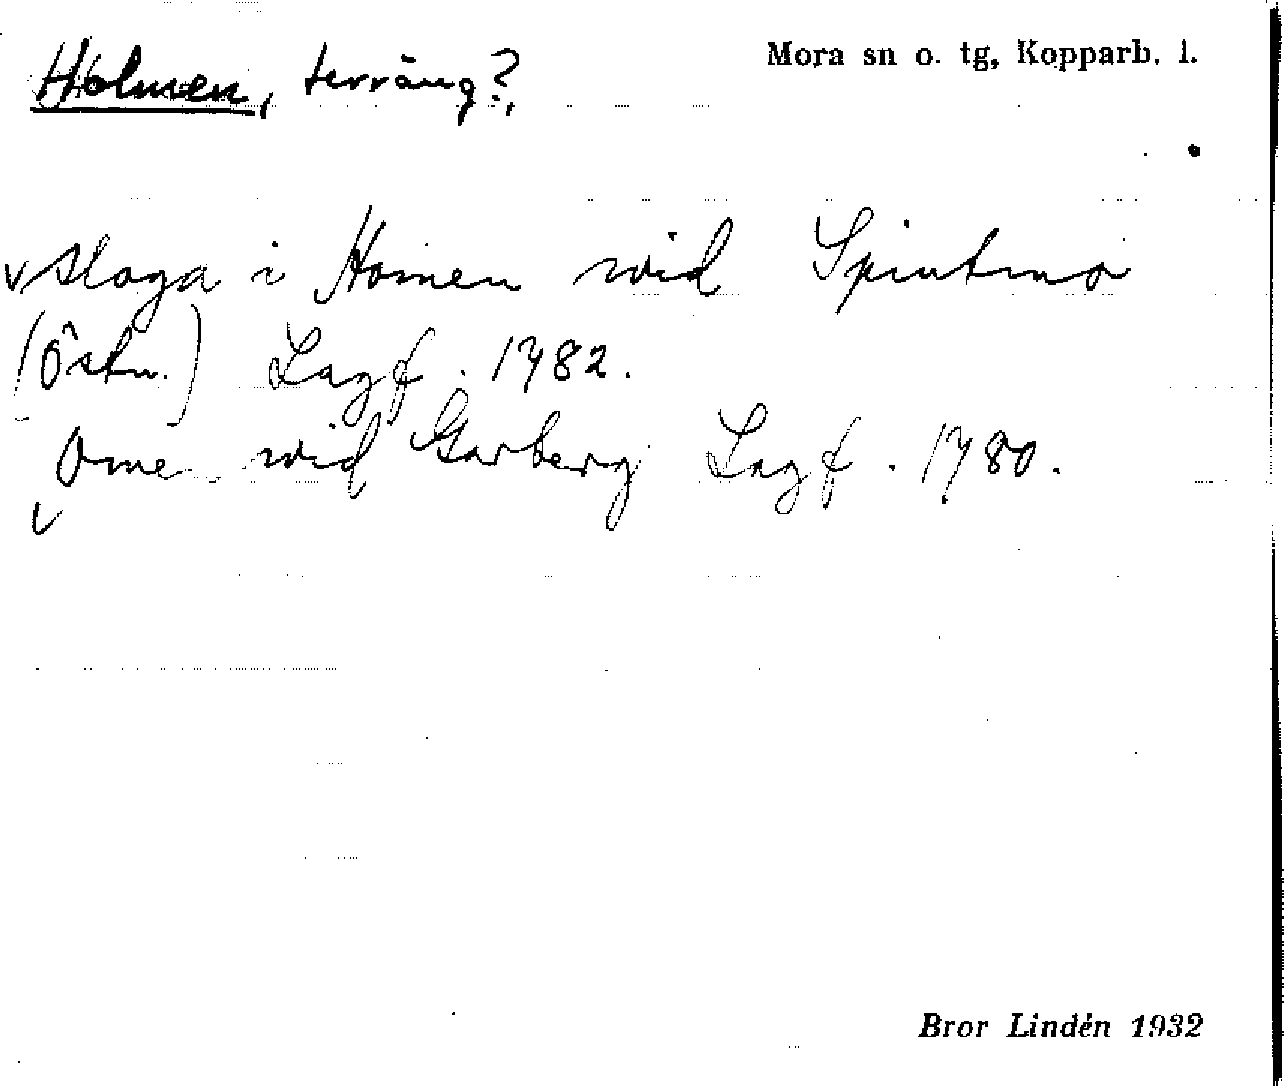 Holmen, terräng?,
Mora sn o. tg, Kopparb. l.
v sloga i Homen wid Spintmo
(Östn.) Lagf. 1782.
Omen wid Garberg Lagf. 1780.
v
Bror Lindén 1932